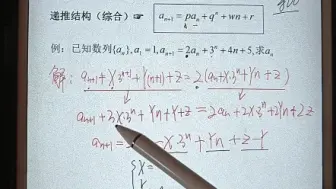 递推结构（综合）☞ aₙ₊₁ = paₙ + qⁿ + wn + r
例：已知数列{aₙ}, a₁ = 1, aₙ₊₁ = 2aₙ + 3ⁿ + 4n + 5, 求aₙ
解： aₙ₊₁ + x·3ⁿ⁺¹ + y(n+1) + z = 2(aₙ + x·3ⁿ + yn + z)
aₙ₊₁ + 3x·3ⁿ + yn + y + z = 2aₙ + 2x·3ⁿ + 2yn + 2z
aₙ₊₁ = - x·3ⁿ + yn + z - y
{ x =